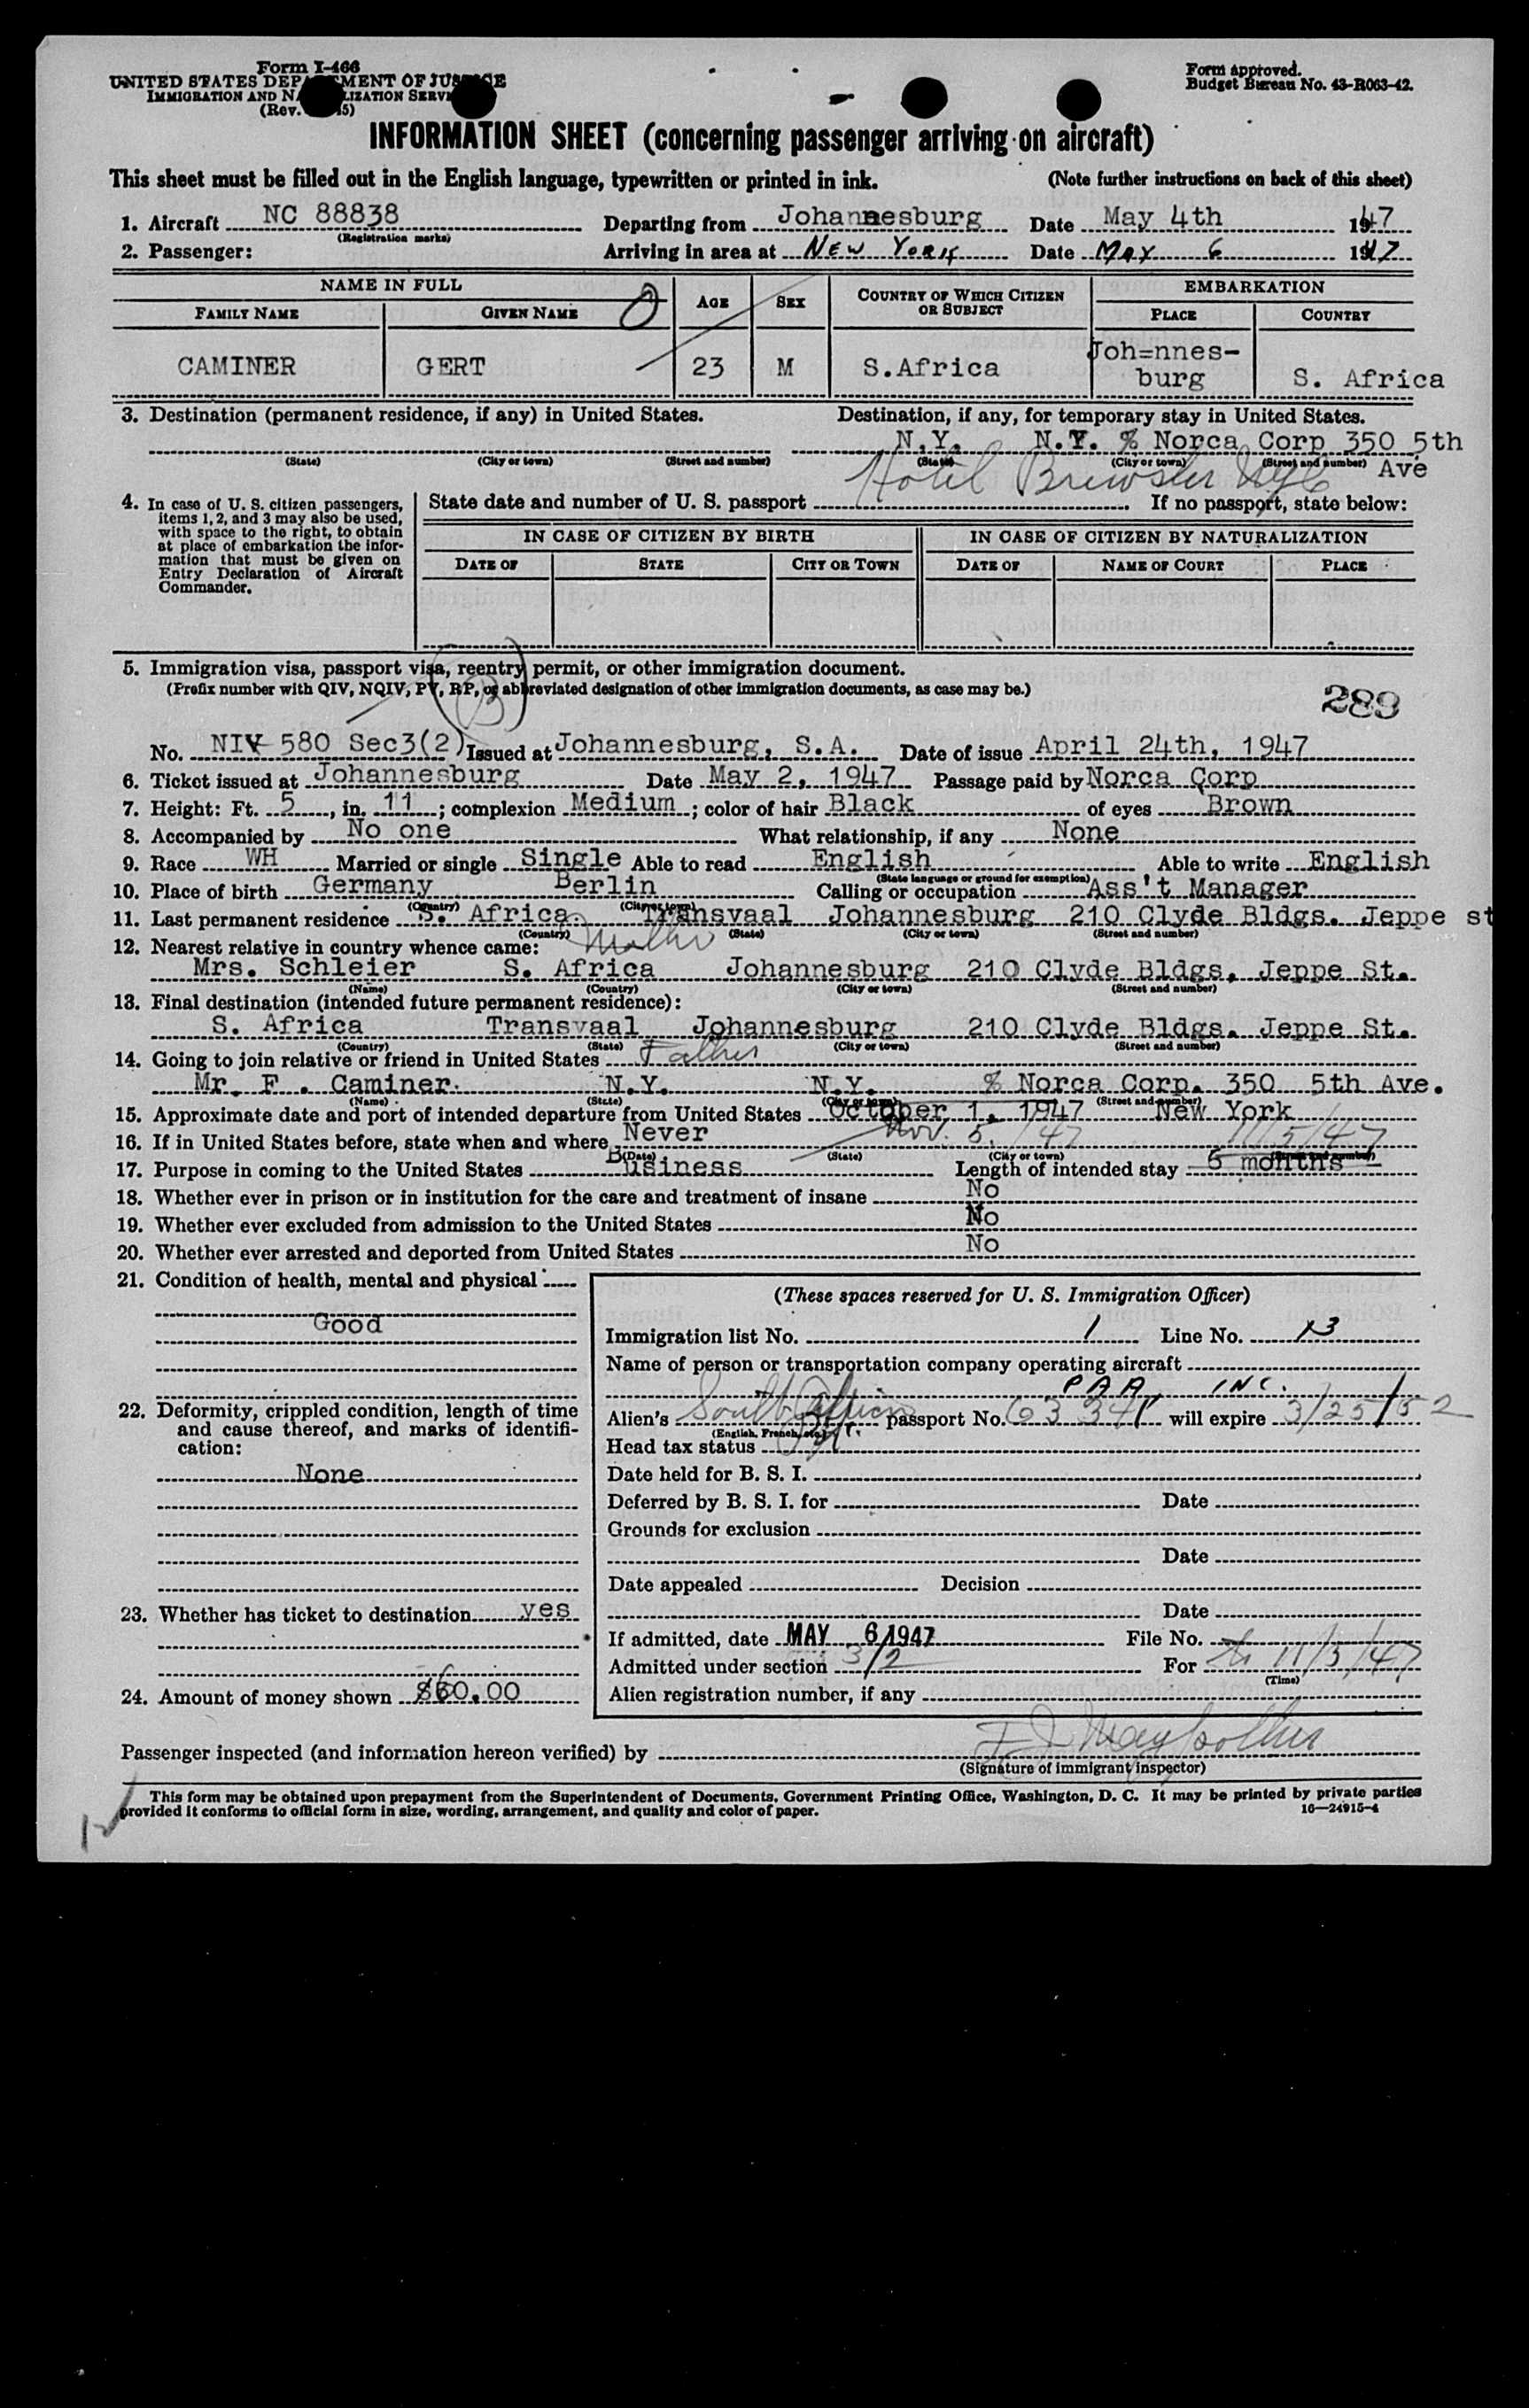 Form I-466
UNITED STATES DEPARTMENT OF JUSTICE
IMMIGRATION AND NATURALIZATION SERVICE
(Rev. 45)
Form approved.
Budget Bureau No. 43-R063-42.
INFORMATION SHEET (concerning passenger arriving on aircraft)
This sheet must be filled out in the English language, typewritten or printed in ink. (Note further instructions on back of this sheet)
1. Aircraft NC 88838 Departing from Johannesburg Date May 4th 1947
(Registration marks)
2. Passenger: Arriving in area at NEW YORK Date MAY 6 1947
NAME IN FULL AGE SEX COUNTRY OF WHICH CITIZEN OR SUBJECT EMBARKATION
FAMILY NAME GIVEN NAME PLACE COUNTRY
CAMINER GERT 23 M S.Africa Joh=nnes-burg S. Africa
3. Destination (permanent residence, if any) in United States. Destination, if any, for temporary stay in United States.
N.Y. N.Y. % Norca Corp 350 5th Ave
(State) (City or town) (Street and number) (State) (City or town) (Street and number)
Hotel Brewster NYC
4. In case of U. S. citizen passengers, items 1, 2, and 3 may also be used, with space to the right, to obtain at place of embarkation the information that must be given on Entry Declaration of Aircraft Commander.
State date and number of U. S. passport If no passport, state below:
IN CASE OF CITIZEN BY BIRTH IN CASE OF CITIZEN BY NATURALIZATION
DATE OF STATE CITY OR TOWN DATE OF NAME OF COURT PLACE
5. Immigration visa, passport visa, reentry permit, or other immigration document.
(Prefix number with QIV, NQIV, PV, RP, or abbreviated designation of other immigration documents, as case may be.)
(B)
289
No. NIV 580 Sec3(2) Issued at Johannesburg, S.A. Date of issue April 24th, 1947
6. Ticket issued at Johannesburg Date May 2, 1947 Passage paid by Norca Corp
7. Height: Ft. 5, in. 11; complexion Medium; color of hair Black of eyes Brown
8. Accompanied by No one What relationship, if any None
9. Race WH Married or single Single Able to read English Able to write English
(State language or ground for exemption)
10. Place of birth Germany Berlin Calling or occupation Ass't Manager
(Country) (City or town)
11. Last permanent residence S. Africa Transvaal Johannesburg 210 Clyde Bldgs. Jeppe st
(Country) (State) (City or town) (Street and number)
12. Nearest relative in country whence came: Mother
Mrs. Schleier S. Africa Johannesburg 210 Clyde Bldgs. Jeppe St.
(Name) (Country) (City or town) (Street and number)
13. Final destination (intended future permanent residence):
S. Africa Transvaal Johannesburg 210 Clyde Bldgs. Jeppe St.
(Country) (State) (City or town) (Street and number)
14. Going to join relative or friend in United States Father
Mr. F. Caminer. N.Y. N.Y. % Norca Corp. 350 5th Ave.
(Name) (State) (City or town) (Street and number)
15. Approximate date and port of intended departure from United States October 1, 1947 New York
16. If in United States before, state when and where Never Nov. 5, /47 11/5/47
(Date) (State) (City or town) (Street and number)
17. Purpose in coming to the United States Business Length of intended stay 6 months
18. Whether ever in prison or in institution for the care and treatment of insane No
19. Whether ever excluded from admission to the United States No
20. Whether ever arrested and deported from United States No
21. Condition of health, mental and physical
Good
22. Deformity, crippled condition, length of time and cause thereof, and marks of identification:
None
23. Whether has ticket to destination yes
24. Amount of money shown $60.00
(These spaces reserved for U. S. Immigration Officer)
Immigration list No. 1 Line No. 13
Name of person or transportation company operating aircraft
PAA, INC.
Alien's South African passport No. will expire 3/25/52
(English, French, etc.)
Head tax status
Date held for B. S. I.
Deferred by B. S. I. for Date
Grounds for exclusion
Date
Date appealed Decision
Date
If admitted, date MAY 6 1947 File No.
Admitted under section 3/2 For to 11/5/47
(Time)
Alien registration number, if any
Passenger inspected (and information hereon verified) by
(Signature of immigrant inspector)
This form may be obtained upon prepayment from the Superintendent of Documents, Government Printing Office, Washington, D. C. It may be printed by private parties
provided it conforms to official form in size, wording, arrangement, and quality and color of paper. 16—24915-4